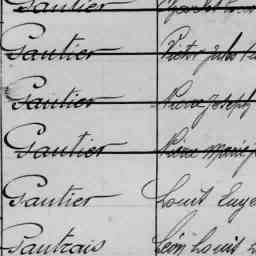 Gautier
Gautier Victor Jules
Gautier Pierre Joseph
Gautier Pierre Marie
Gautier Louis Eugè
Gautrais Léon Louis